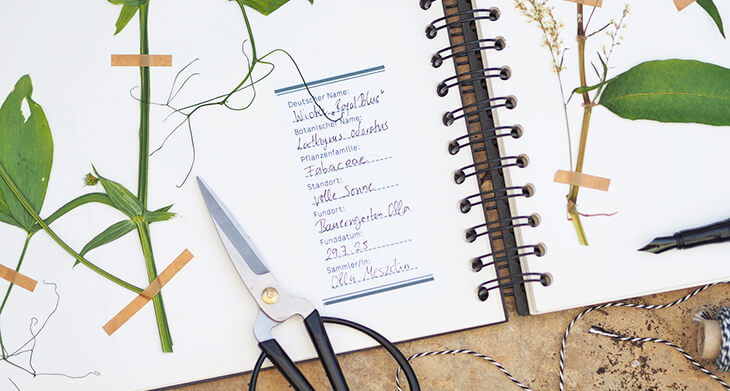 Deutscher Name:
Wicke „Royal Blue"
Botanischer Name:
Lathyrus odoratus
Pflanzenfamilie:
Fabaceae
Standort:
volle Sonne
Fundort:
Bauerngarten Olla
Funddatum:
29.7.25
Sammler/in:
Olla Meszelin